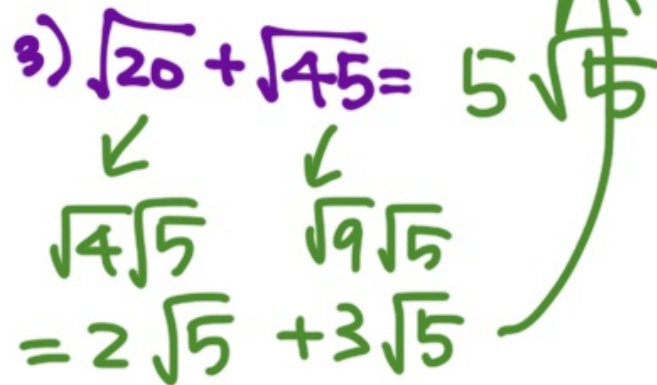 3) √20 + √45 = 5√5
√4√5 √9√5
= 2√5 + 3√5